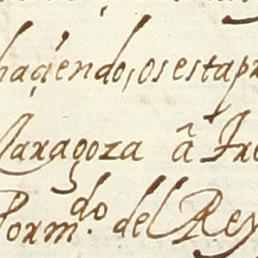 haçiendo, os esta pr
Caragoza â Tre
Porm.do del Rey